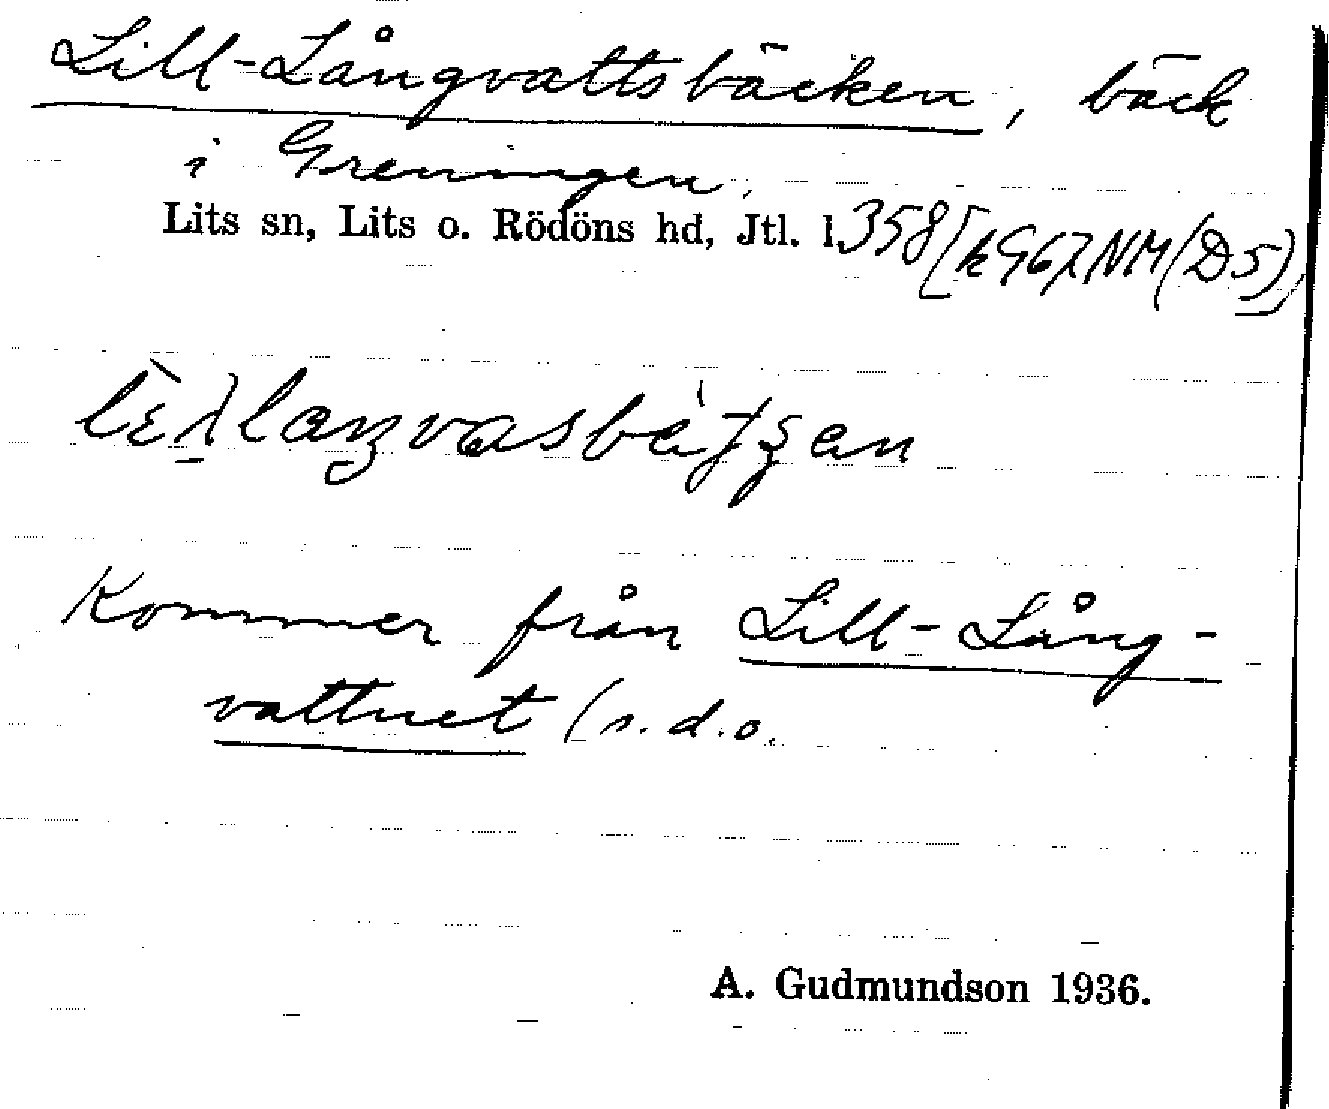 Lill-Långvattsbäcken, bäck
i Greningen.
Lits sn, Lits o. Rödöns hd, Jtl. l. 358
Kommer från Lill-Lång-
vattnet (s.d.o.
A. Gudmundson 1936.